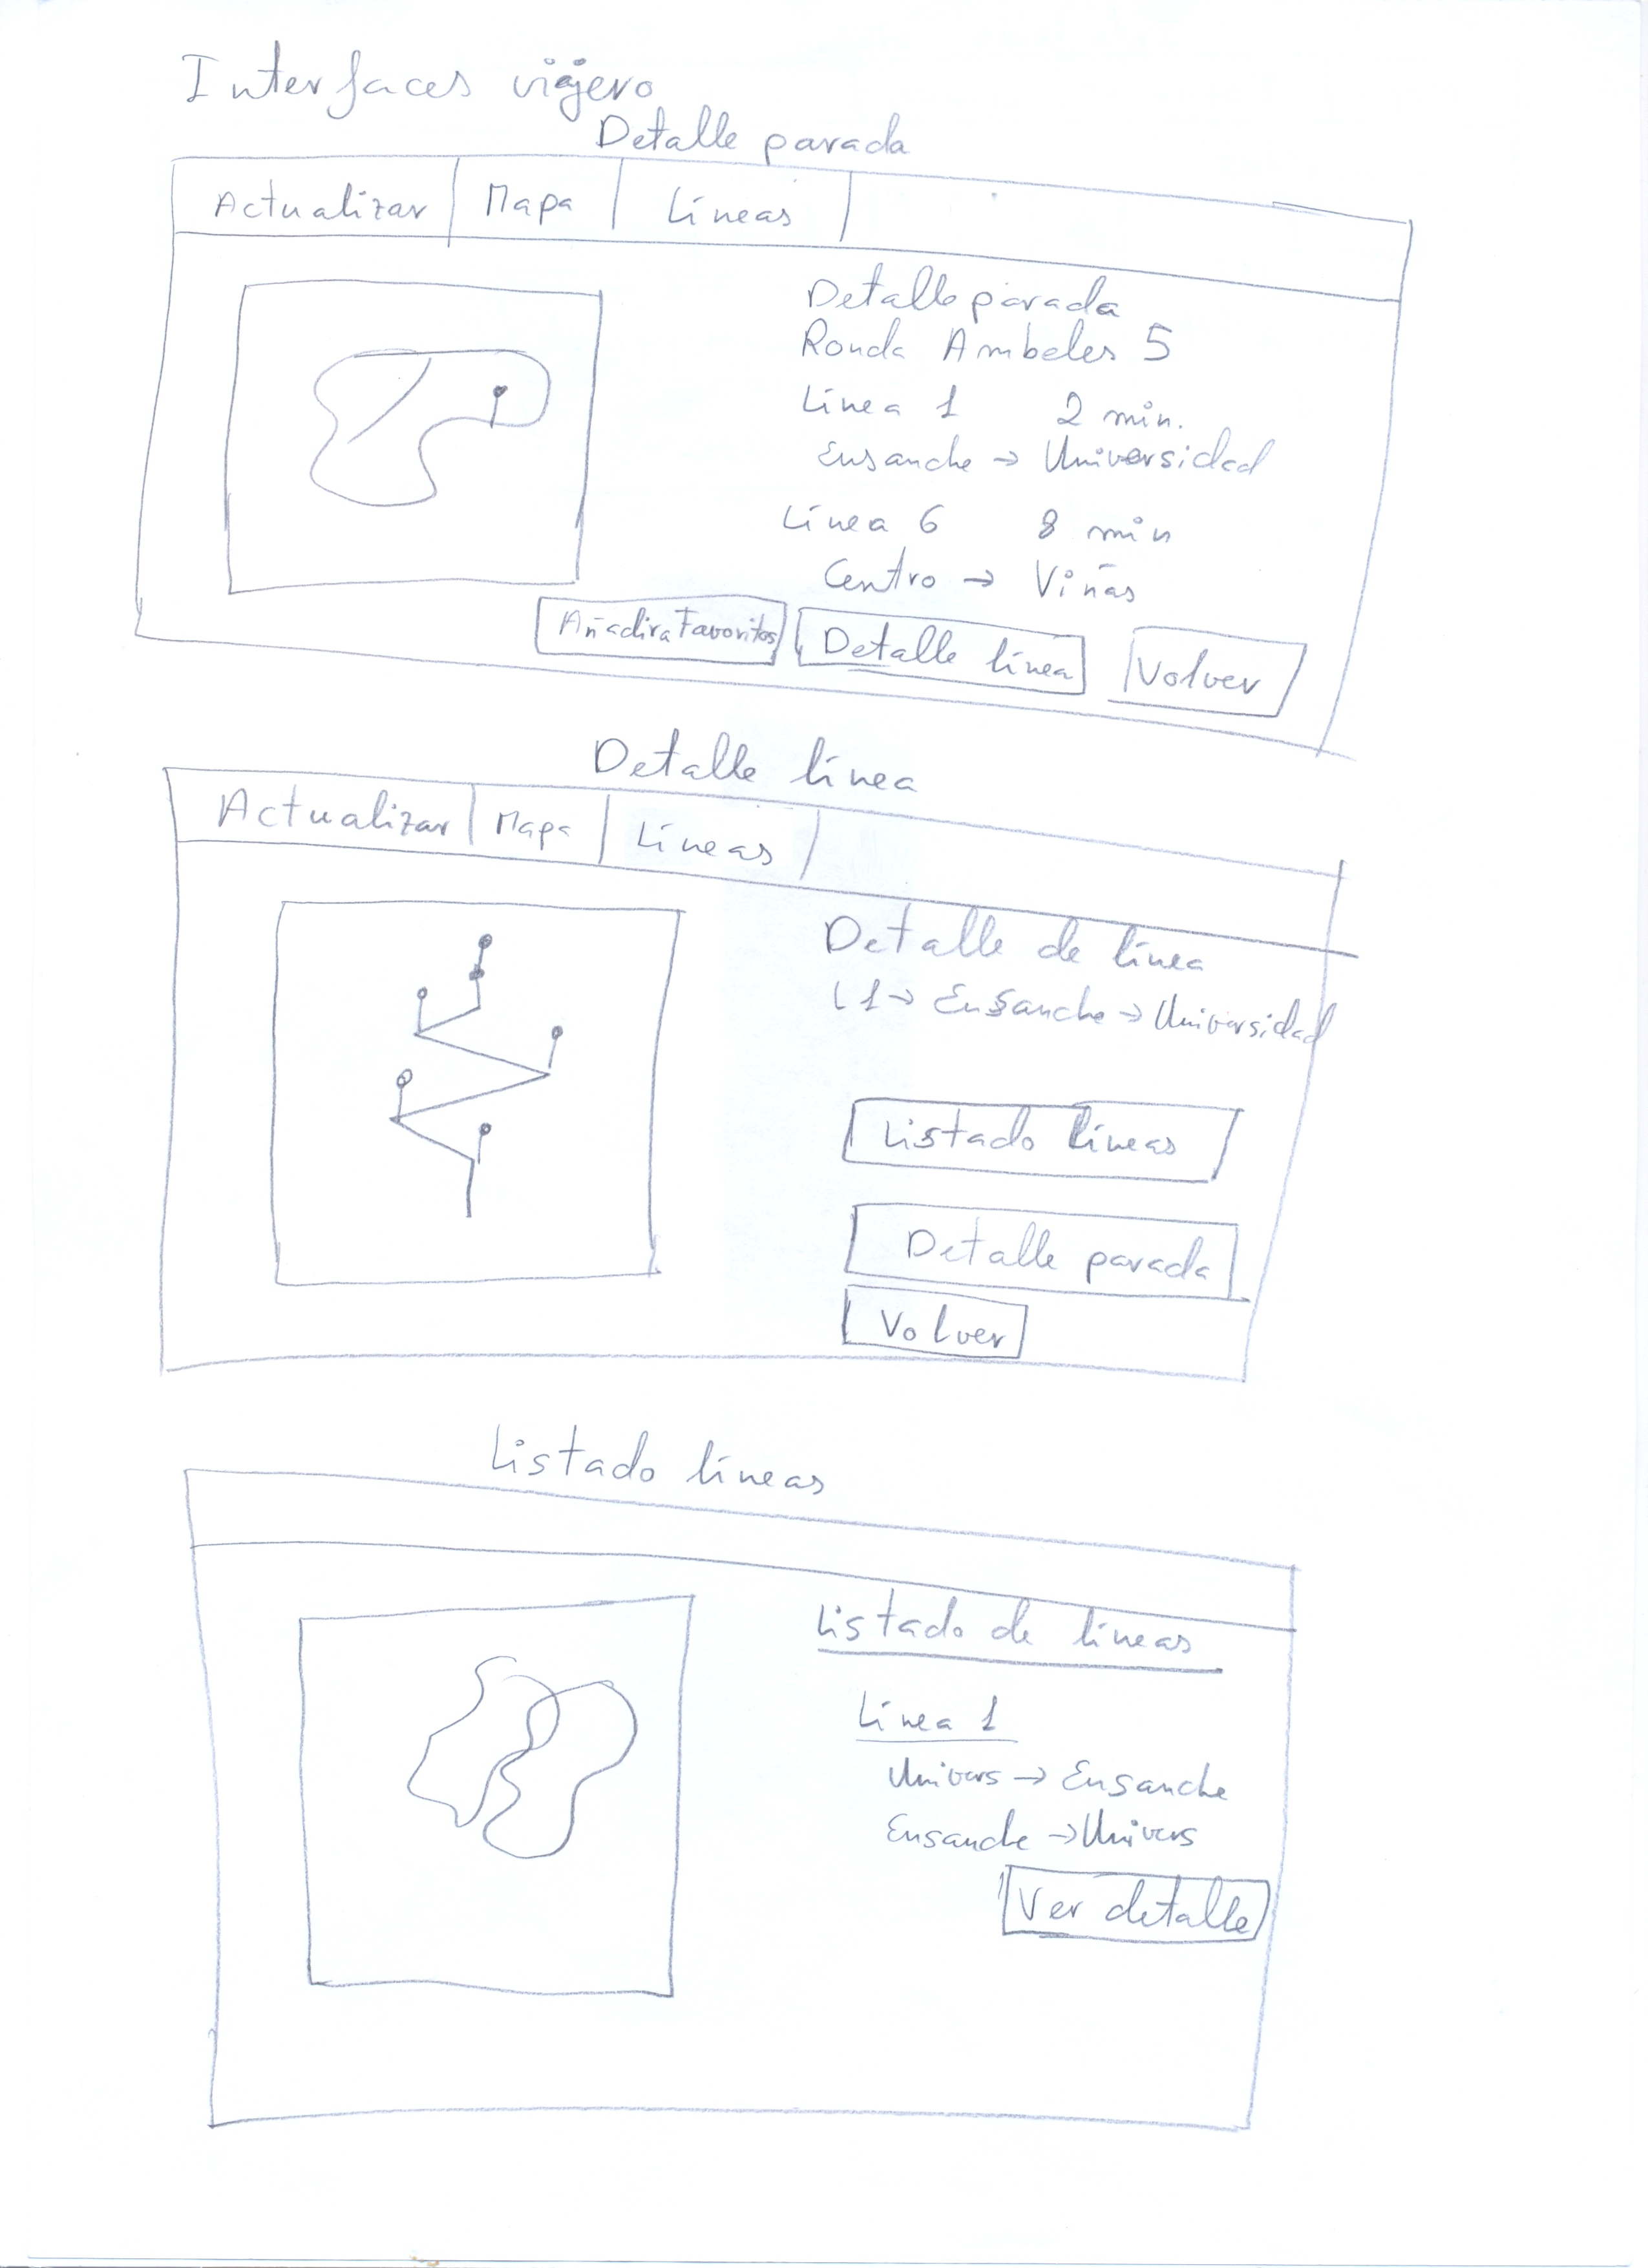 Interfaces viajero
Detalle parada
Actualizar Mapa Líneas
Detalle parada
Ronda Ambeles 5
Línea 1 2 min.
Ensanche → Universidad
Línea 6 8 min
Centro → Viñas
Añadir a Favoritos Detalle línea Volver
Detalle línea
Actualizar Mapa Líneas
Detalle de línea
L1 → Ensanche → Universidad
Listado líneas
Detalle parada
Volver
Listado líneas
Listado de líneas
Línea 1
Univers → Ensanche
Ensanche → Univers
Ver detalle